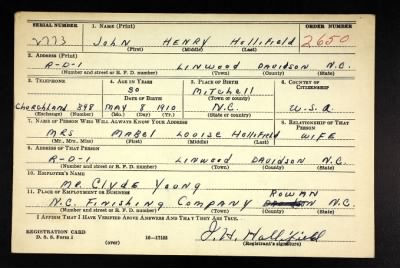 SERIAL NUMBER 1. NAME (Print) ORDER NUMBER
2773 JOHN HENRY Hollifield 2650
(First) (Middle) (Last)
2. ADDRESS (Print)
R-D-1 LINWOOD DAVIDSON N.C.
(Number and street or R. F. D. number) (Town) (County) (State)
3. TELEPHONE 4. AGE IN YEARS 5. PLACE OF BIRTH 6. COUNTRY OF CITIZENSHIP
30 Mitchell
DATE OF BIRTH (Town or county)
Churchland 398 MAY 8 1910 N.C. U.S.A.
(Exchange) (Number) (Mo.) (Day) (Yr.) (State or country)
7. NAME OF PERSON WHO WILL ALWAYS KNOW YOUR ADDRESS 8. RELATIONSHIP OF THAT PERSON
MRS MABEL LOUISE Hollifield WIFE
(Mr., Mrs., Miss) (First) (Middle) (Last)
9. ADDRESS OF THAT PERSON
R-D-1 LINWOOD DAVIDSON N.C.
(Number and street or R. F. D. number) (Town) (County) (State)
10. EMPLOYER'S NAME
Mr. Clyde Young
11. PLACE OF EMPLOYMENT OR BUSINESS ROWAN
N.C. FINISHING COMPANY N.C.
(Number and street or R. F. D. number) (Town) (County) (State)
I AFFIRM THAT I HAVE VERIFIED ABOVE ANSWERS AND THAT THEY ARE TRUE.
REGISTRATION CARD J. H. Hollifield
D. S. S. Form 1 (over) 16-17105 (Registrant's signature)